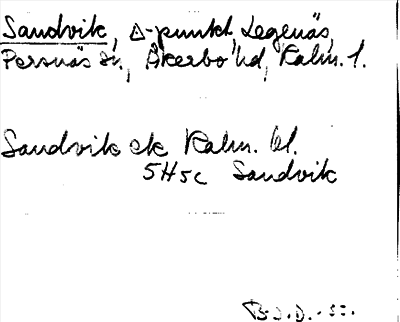 Sandvik, Δ-punkt, Legenäs,
Persnäs sn., Åkerbo hd, Kalm. l.
Sandvik ek Kalm. bl.
5H5c Sandvik